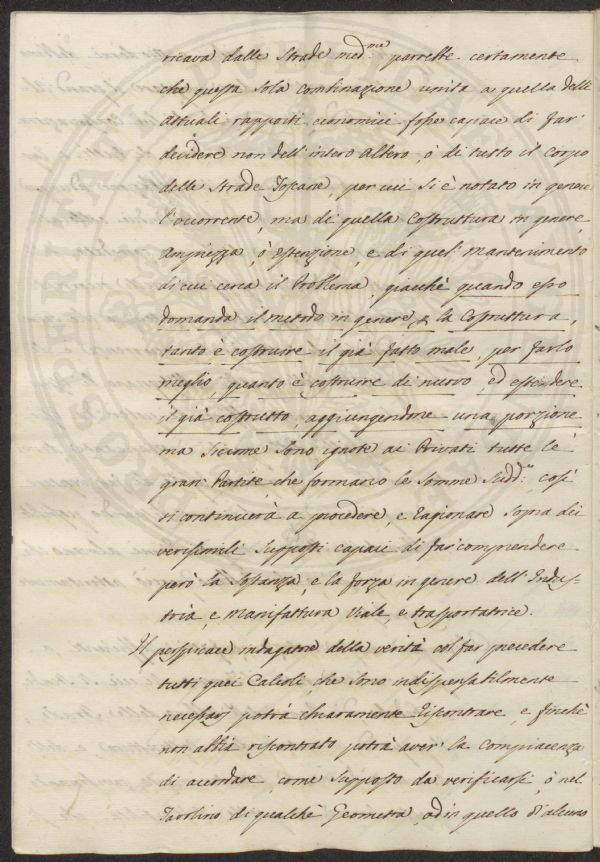 ricava dalle Strade med.me parrebbe certamente
che questa sola combinazione unita a quella delli
attuali rapporti economici fosse capace di far'
decidere non dell'intero altero, ò di tutto il corpo
delle Strade Toscane, per cui si è notato in genere
l'occorrente, ma di quella Costruttura in genere,
Ampiezza, ò estenzione, e di quel' Mantenimento
di cui cerca il Problema, giacchè quando esso
domanda il metodo in genere & la Costruttura,
tanto è costruire il già fatto male, per farlo
meglio quanto è costruire di nuovo ed estendere
il già costrutto, aggiungendone una porzione
ma siccome sono ignote ai Privati tutte le
gran' Partite, che formano le Somme Sudd.e, così
si continuerà a procedere, e ragionare sopra dei
verisimili supposti capaci di far comprendere
però la Sostanza, e la forza in genere dell'Indus-
tria, e Manifattura Viale, e trasportatrice.
Il perspicace indagatore della verità col far precedere
tutti quei Calcoli, che sono indispensabilmente
necessarj potrà chiaramente riscontrare, e finchè
non abbia riscontrato potrà aver' la compiacenza
di accordare, come supposto da verificarsi, ò nel
Tavolino di qualche Geometra, od in quello d'alcuno